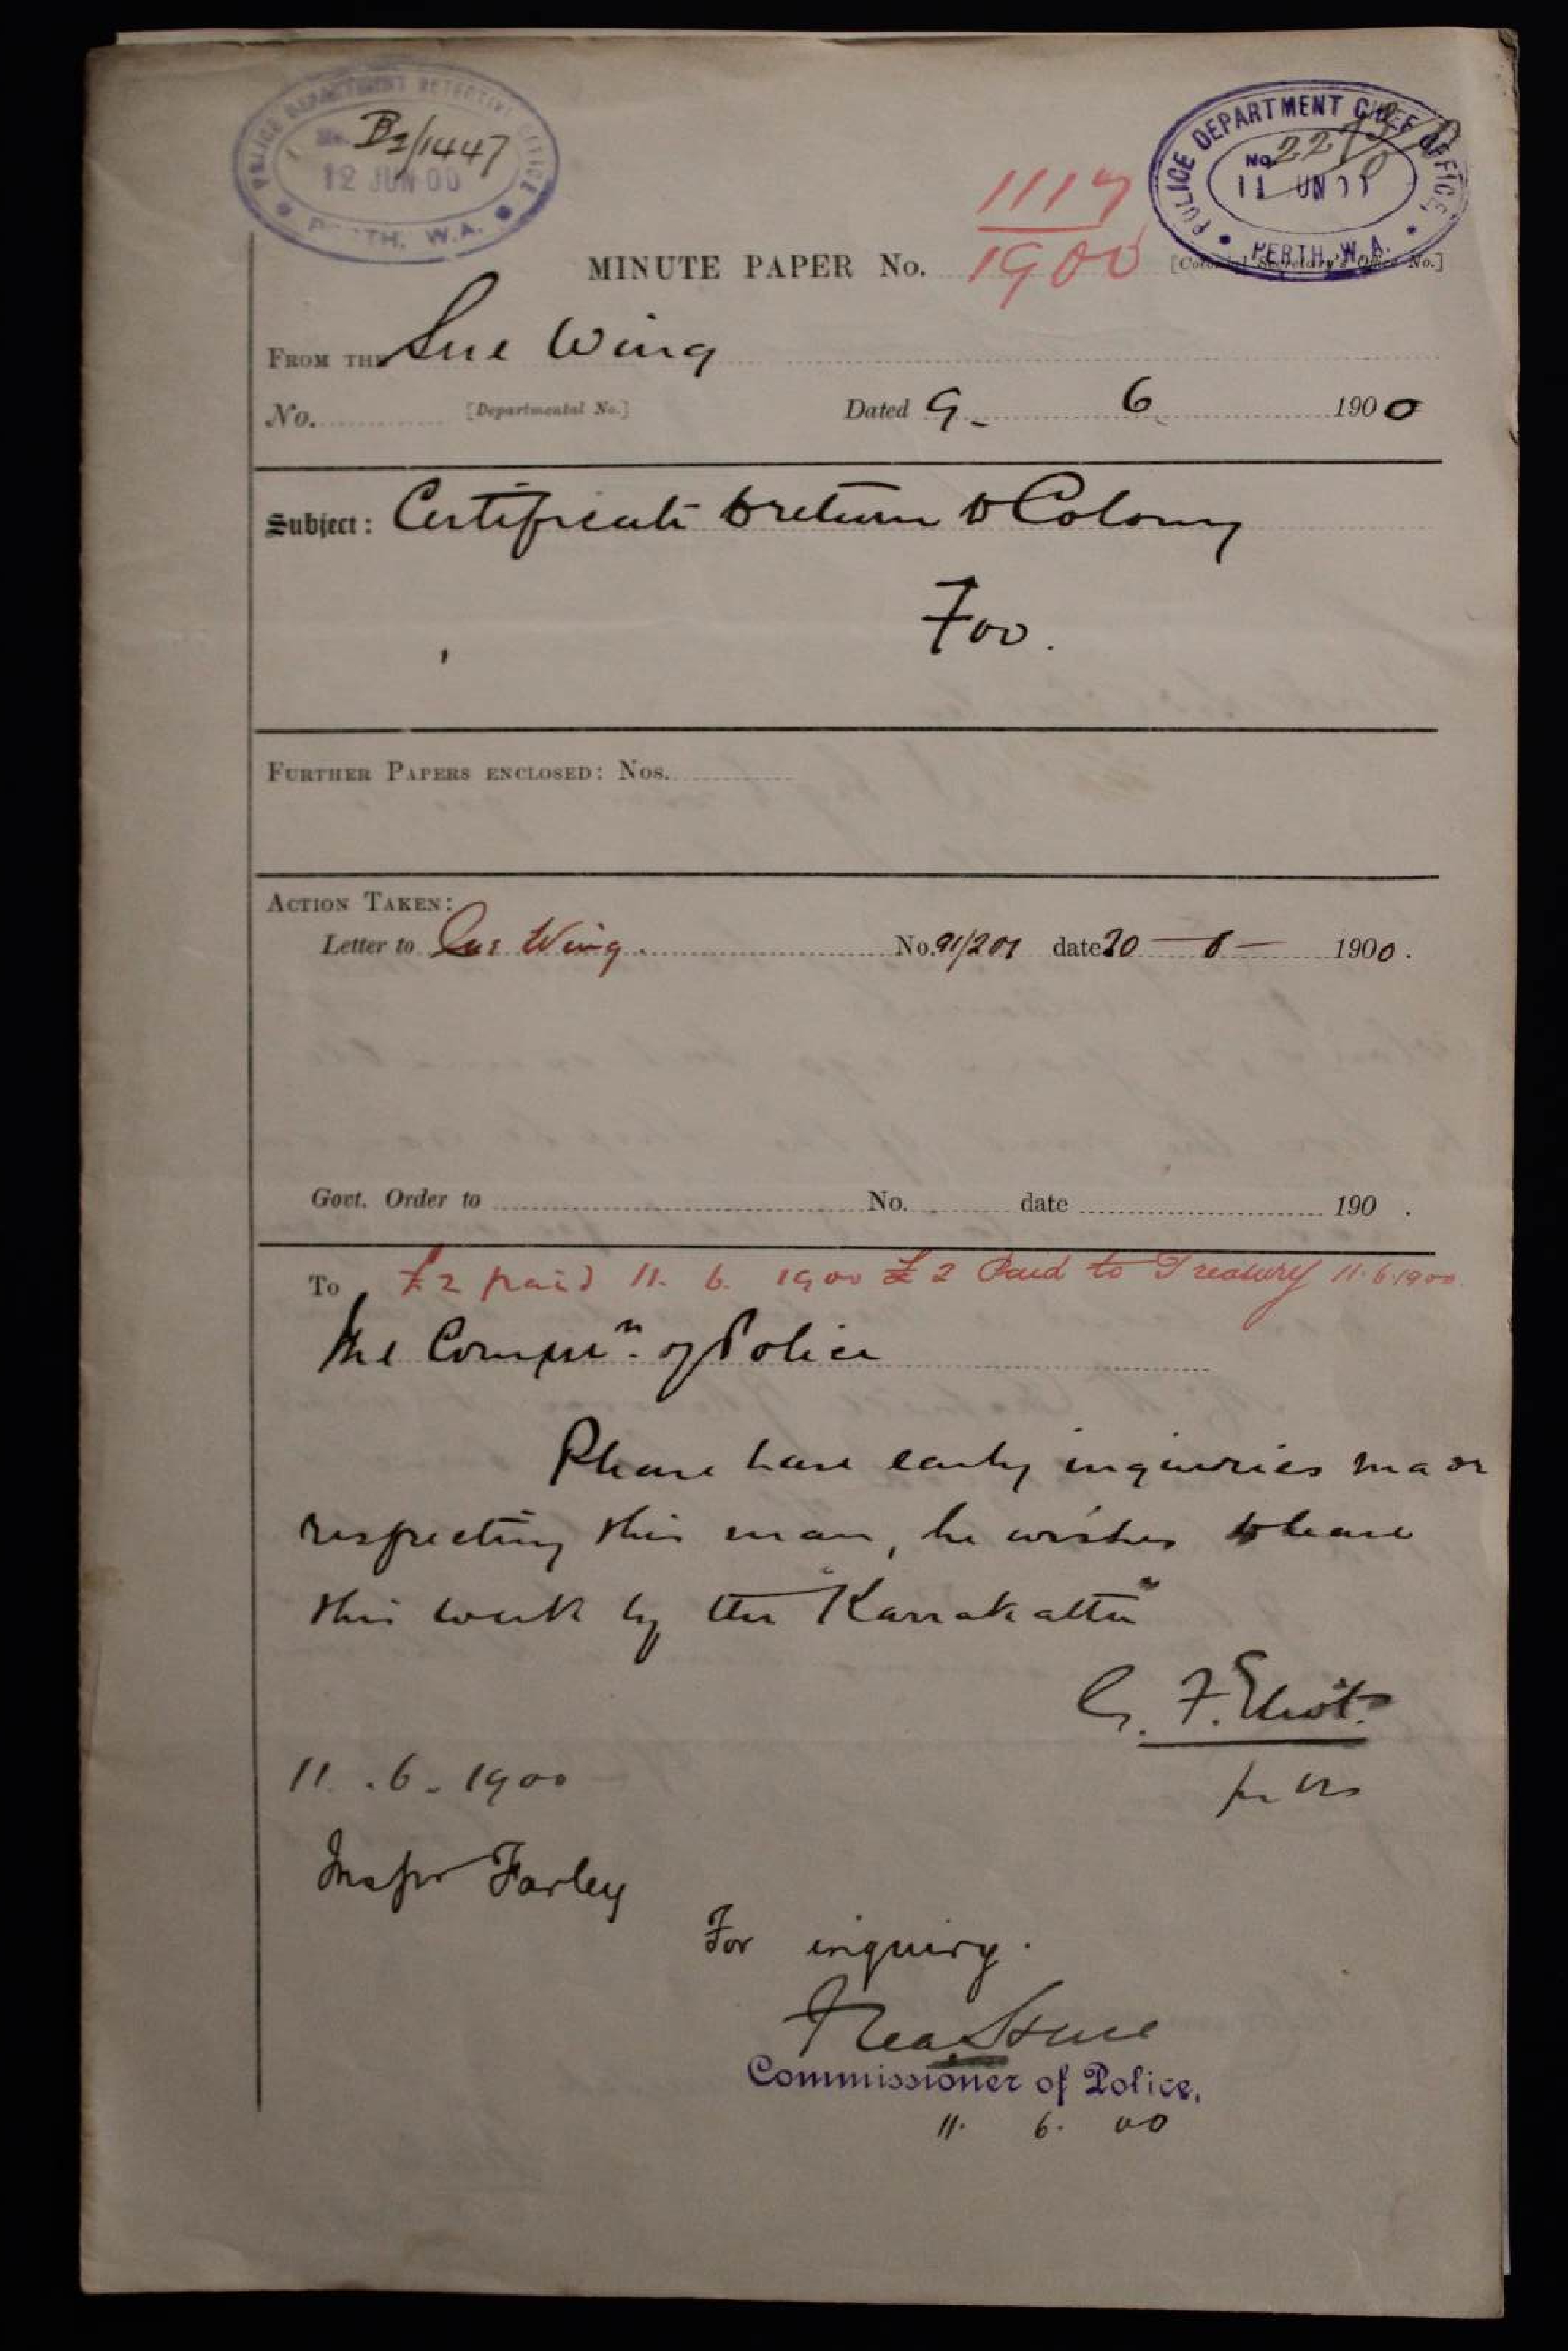 POLICE DEPARTMENT DETECTIVE OFFICE
No. B2/1447
12 JUN 00
PERTH, W.A.
POLICE DEPARTMENT CHIEF OFFICE
No.
11 JUN 00
PERTH, W.A.
1117
1900
MINUTE PAPER No.
[Colonial Secretary's Office No.]
FROM THE Sue Wing
No. [Departmental No.] Dated 9. 6. 1900
Subject: Certificate to return to Colony
For.
FURTHER PAPERS ENCLOSED: Nos.
ACTION TAKEN:
Letter to Sue Wing. No. 91/201 date 20 — 6 — 1900.
Govt. Order to No. date 190 .
To £2 paid 11. 6. 1900 £2 Paid to Treasury 11.6.1900.
The Commr. of Police
Please have early inquiries made
respecting this man, he wishes to leave
this week by the "Karrakatta"
G. F. Eliot.
11. 6. 1900
Inspr Farley
For inquiry.
Fredk Hare
Commissioner of Police.
11. 6. 00